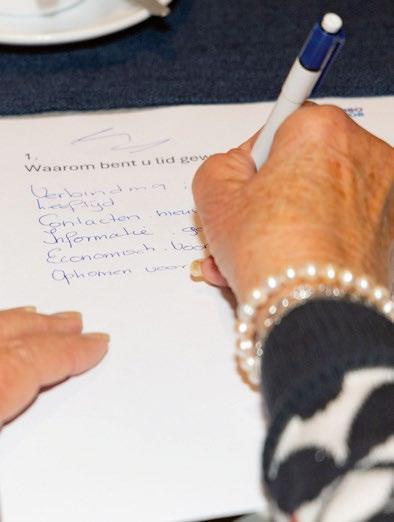 1.
Waarom bent u lid gew
Verbinding
leeftijd
Contacten nieu
Informatie ge
Economisch voor
Opkomen voor